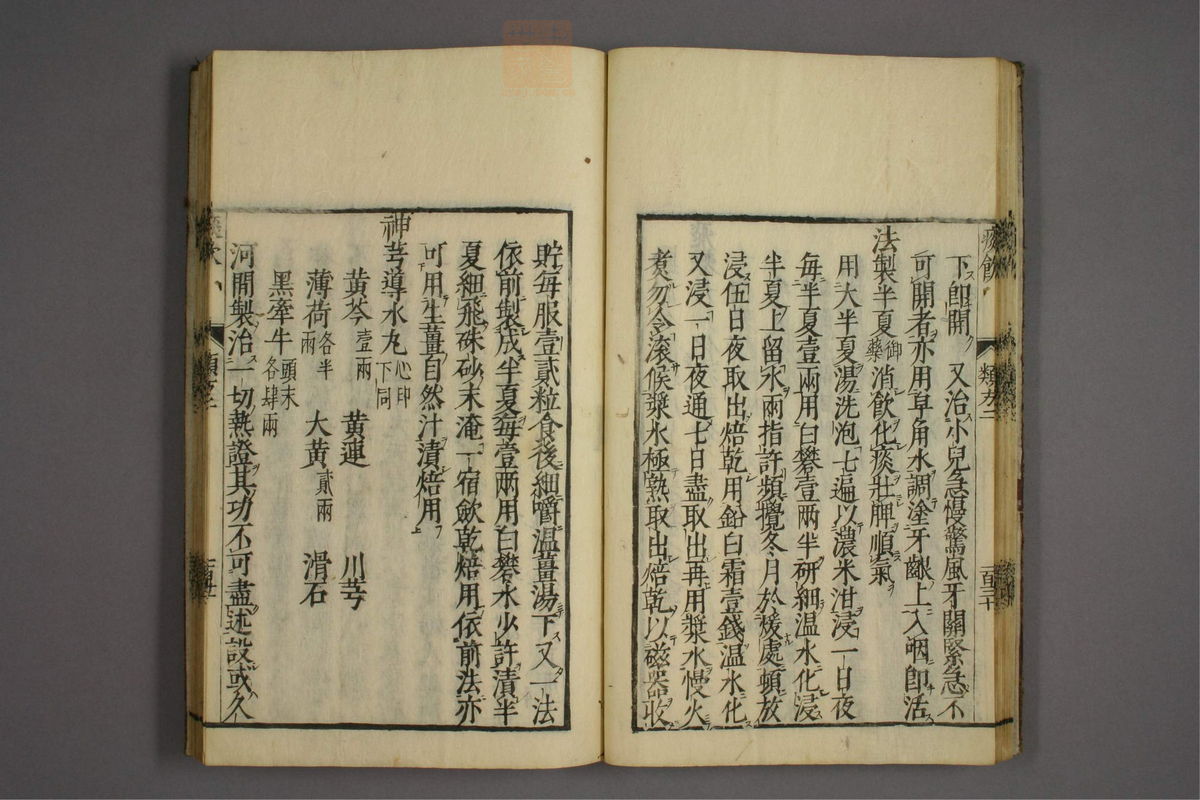 下即開 又治小兒急慢驚風牙關緊急不
可開者亦用皂角水調塗牙齦上入咽即活
法製半夏御藥 消飲化痰壯脾順氣
用大半夏湯洗泡七遍以濃米泔浸一日夜
每半夏壹兩用白礬壹兩半研細温水化浸
半夏上留水兩指許頻攪冬月於煖處頓放
浸伍日夜取出焙乾用鉛白霜壹錢温水化
又浸一日夜通七日盡取出再用漿水慢火
煮勿令滾候漿水極熱取出焙乾以磁器收
貯每服壹貳粒食後細嚼温薑湯下又一法
依前製成半夏每壹兩用白礬水少許漬半
夏細飛硃砂末淹一宿歛乾焙用依前法亦
可用生薑自然汁漬焙用
神芎導水丸心印下同
黄芩壹兩 黄連 川芎
薄荷各半兩 大黄貳兩 滑石
黑牽牛頭末各肆兩
河間製治一切熱證其功不可盡述設或久